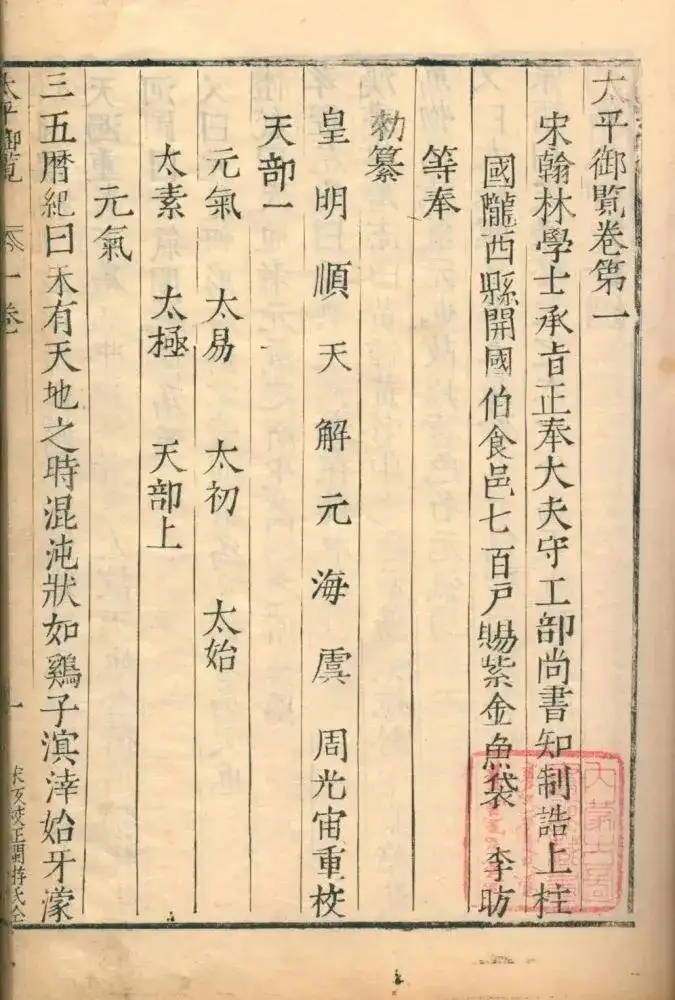 太平御覧卷第一
宋翰林學士承旨正奉大夫守工部尚書知制誥上柱
國隴西縣開國伯食邑七百戸賜紫金魚袋 李昉
等奉
勑纂
皇明順天解元海虞周光宙重校
天部一
元氣 太易 太初 太始
太素 太極 天部上
元氣
三五曆紀曰未有天地之時混沌狀如鷄子溟涬始牙濛
太平御覧 卷一
宋板校正閩游氏仝